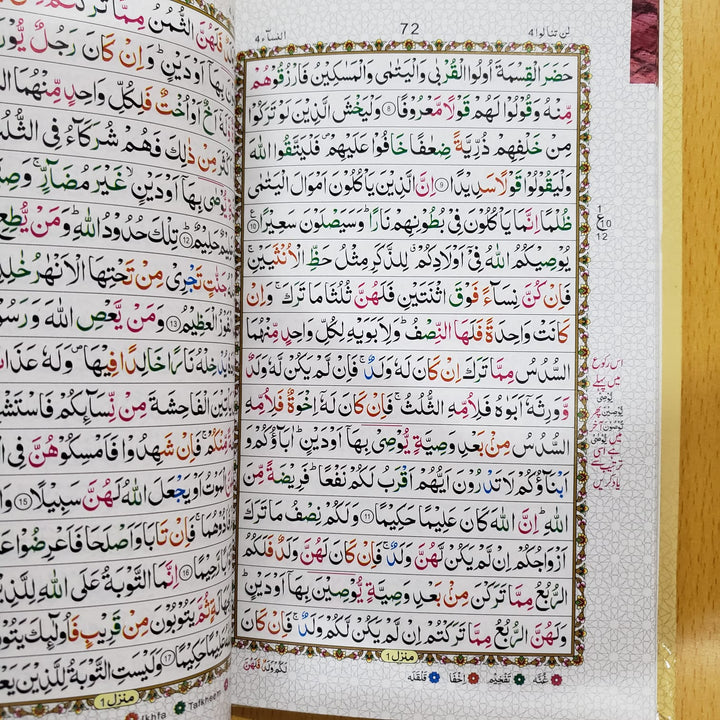 لن تنالوا 4
72
النسآء 4
حَضَرَ الۡقِسۡمَةَ اُولُوا الۡقُرۡبٰى وَالۡيَتٰمٰى وَالۡمَسٰكِيۡنُ فَارۡزُقُوۡهُمۡ
مِّنۡهُ وَقُوۡلُوۡا لَهُمۡ قَوۡلًا مَّعۡرُوۡفًا ﴿8﴾ وَلۡيَخۡشَ الَّذِيۡنَ لَوۡ تَرَكُوۡا
مِنۡ خَلۡفِهِمۡ ذُرِّيَّةً ضِعٰفًا خَافُوۡا عَلَيۡهِمۡ ۖ فَلۡيَتَّقُوا اللّٰهَ
وَلۡيَقُوۡلُوۡا قَوۡلًا سَدِيۡدًا ﴿9﴾ اِنَّ الَّذِيۡنَ يَاۡكُلُوۡنَ اَمۡوَالَ الۡيَتٰمٰى
ظُلۡمًا اِنَّمَا يَاۡكُلُوۡنَ فِىۡ بُطُوۡنِهِمۡ نَارًا ؕ وَسَيَصۡلَوۡنَ سَعِيۡرًا ﴿10﴾
يُوۡصِيۡكُمُ اللّٰهُ فِىۡۤ اَوۡلَادِكُمۡ ۗ لِلذَّكَرِ مِثۡلُ حَظِّ الۡاُنۡثَيَيۡنِ ۚ
فَاِنۡ كُنَّ نِسَآءً فَوۡقَ اثۡنَتَيۡنِ فَلَهُنَّ ثُلُثَا مَا تَرَكَ ۚ وَاِنۡ
كَانَتۡ وَاحِدَةً فَلَهَا النِّصۡفُ ؕ وَلِاَبَوَيۡهِ لِكُلِّ وَاحِدٍ مِّنۡهُمَا
السُّدُسُ مِمَّا تَرَكَ اِنۡ كَانَ لَهٗ وَلَدٌ ۚ فَاِنۡ لَّمۡ يَكُنۡ لَّهٗ وَلَدٌ
وَّوَرِثَهٗۤ اَبَوٰهُ فَلِاُمِّهِ الثُّلُثُ ۚ فَاِنۡ كَانَ لَهٗۤ اِخۡوَةٌ فَلِاُمِّهِ
السُّدُسُ مِنۡۢ بَعۡدِ وَصِيَّةٍ يُّوۡصِىۡ بِهَاۤ اَوۡ دَيۡنٍ ؕ اٰبَآؤُكُمۡ وَ
اَبۡنَآؤُكُمۡ لَا تَدۡرُوۡنَ اَيُّهُمۡ اَقۡرَبُ لَكُمۡ نَفۡعًا ؕ فَرِيۡضَةً مِّنَ
اللّٰهِ ؕ اِنَّ اللّٰهَ كَانَ عَلِيۡمًا حَكِيۡمًا ﴿11﴾ وَلَكُمۡ نِصۡفُ مَا تَرَكَ
اَزۡوَاجُكُمۡ اِنۡ لَّمۡ يَكُنۡ لَّهُنَّ وَلَدٌ ۚ فَاِنۡ كَانَ لَهُنَّ وَلَدٌ فَلَكُمُ
الرُّبُعُ مِمَّا تَرَكۡنَ مِنۡۢ بَعۡدِ وَصِيَّةٍ يُّوۡصِيۡنَ بِهَاۤ اَوۡ دَيۡنٍ ؕ
وَلَهُنَّ الرُّبُعُ مِمَّا تَرَكۡتُمۡ اِنۡ لَّمۡ يَكُنۡ لَّكُمۡ وَلَدٌ ۚ فَاِنۡ كَانَ
منزل 1
لَكُمۡ وَلَدٌ فَلَهُنَّ
غُنَّه تَفْخِيْم اِخْفَا قَلْقَلَه
1
ع
10
12
اس رکوع
میں پہلے
يُوۡصِىۡ
پھر
يُوۡصِيۡنَ
آخر
میں
يُوۡصٰى
ہے اسی
ترتیب سے
یاد کریں
فَلَهُنَّ الثُّمُنُ مِمَّا تَرَكۡتُمۡ
اَوۡ دَيۡنٍ ؕ وَاِنۡ كَانَ رَجُلٌ يُّوۡرَ
اَخٌ اَوۡ اُخۡتٌ فَلِكُلِّ وَاحِدٍ مِّنۡهُمَا ال
مِنۡ ذٰلِكَ فَهُمۡ شُرَكَآءُ فِى الثُّلُ
بِهَاۤ اَوۡ دَيۡنٍ ۙ غَيۡرَ مُضَآرٍّ ۚ وَصِ
حَلِيۡمٌ ؕ ﴿12﴾ تِلۡكَ حُدُوۡدُ اللّٰهِ ؕ وَمَنۡ يُّطِعِ
تَجۡرِىۡ مِنۡ تَحۡتِهَا الۡاَنۡهٰرُ خٰلِدِ
الۡعَظِيۡمُ ﴿13﴾ وَمَنۡ يَّعۡصِ اللّٰهَ وَرَسُوۡ
نَارًا خَالِدًا فِيۡهَا ۖ وَلَهٗ عَذَا
الۡفَاحِشَةَ مِنۡ نِّسَآئِكُمۡ فَاسۡتَشۡ
فَاِنۡ شَهِدُوۡا فَاَمۡسِكُوۡهُنَّ فِى ال
الۡمَوۡتُ اَوۡ يَجۡعَلَ اللّٰهُ لَهُنَّ سَبِيۡلًا ﴿15﴾
فَاِنۡ تَابَا وَاَصۡلَحَا فَاَعۡرِضُوۡا عَ
﴿16﴾ اِنَّمَا التَّوۡبَةُ عَلَى اللّٰهِ لِلَّذِيۡنَ
ثُمَّ يَتُوۡبُوۡنَ مِنۡ قَرِيۡبٍ فَاُولٰٓئِكَ يَتُوۡبُ
حَكِيۡمًا ﴿17﴾ وَلَيۡسَتِ التَّوۡبَةُ لِلَّذِيۡنَ يَعۡ
منزل 1
Ikhfa
Tafkheem